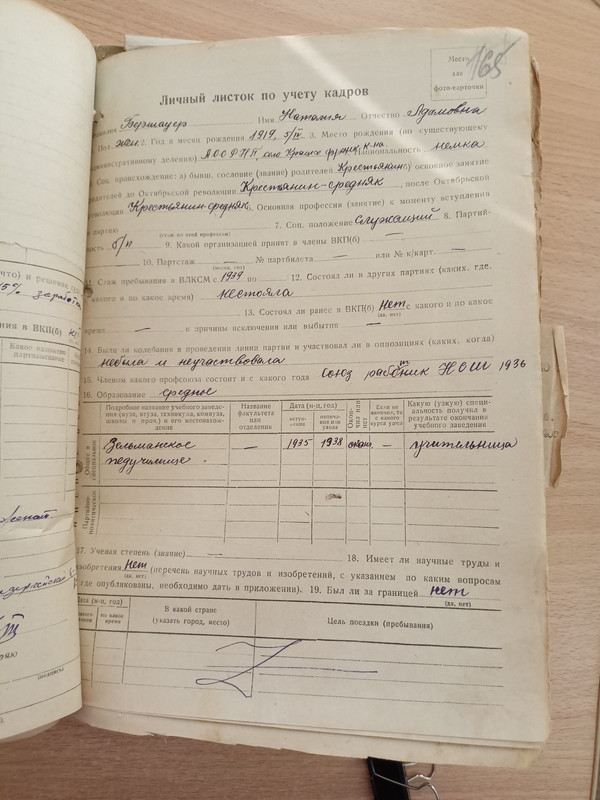 165
Место
для
фото-карточки
Личный листок по учету кадров
Бершауер Имя Наталья Отчество Адамовна
Пол жен 2. Год и месяц рождения 1919, 5/IV 3. Место рождения (по существующему
административному делению) АССРНП немка
Соц. происхождение: а) бывш. сословие (звание) родителей Крестьянин основное занятие
родителей до Октябрьской революции Крестьянин-средняк, после Октябрьской
революции Крестьянин-средняк. Основная профессия (занятие) к моменту вступления
в партию 7. Соц. положение Служащий 8. Партий-
(стаж по этой профессии)
ность б/п 9. Какой организацией принят в члены ВКП(б) —
10. Партстаж — № партбилета — или № к/карт. —
(месяц, год)
11. Стаж пребывания в ВЛКСМ с 1939 по — 12. Состоял ли в других партиях (каких, где,
какого и по какое время) нестояла
13. Состоял ли ранее в ВКП(б) Нет с какого и по какое
(да, нет)
время — и причины исключения или выбытия —
14. Были ли колебания в проведении линии партии и участвовал ли в оппозициях (каких, когда)
небыла и неучаствовала
15. Членом какого профсоюза состоит и с какого года Союз НСШ 1936
16. Образование среднее
Подробное название учебного заведе-
ния (вуза, втуза, техникума, комвуза,
школы и проч.) и его местонахож-
дение
Название
факультета
или
отделения
Дата (м-ц, год)
вступ-
ления
окончания или
ухода
Если не
окончил, то
с какого
курса ушел
Какую (узкую) специ-
альность получил в
результате окончания
учебного заведения
Общее и
специальное
Зельманское — 1935 1938 окон. — учительница
педучилище.
Партийно-
политическое
17. Ученая степень (звание) — 18. Имеет ли научные труды и
изобретения Нет (перечень научных трудов и изобретений, с указанием по каким вопросам
(да, нет)
где опубликованы, необходимо дать в приложении). 19. Был ли за границей нет
(да, нет)
Дата (м-ц, год)
по какое
время
В какой стране
(указать город, место)
Цель поездки (пребывания)